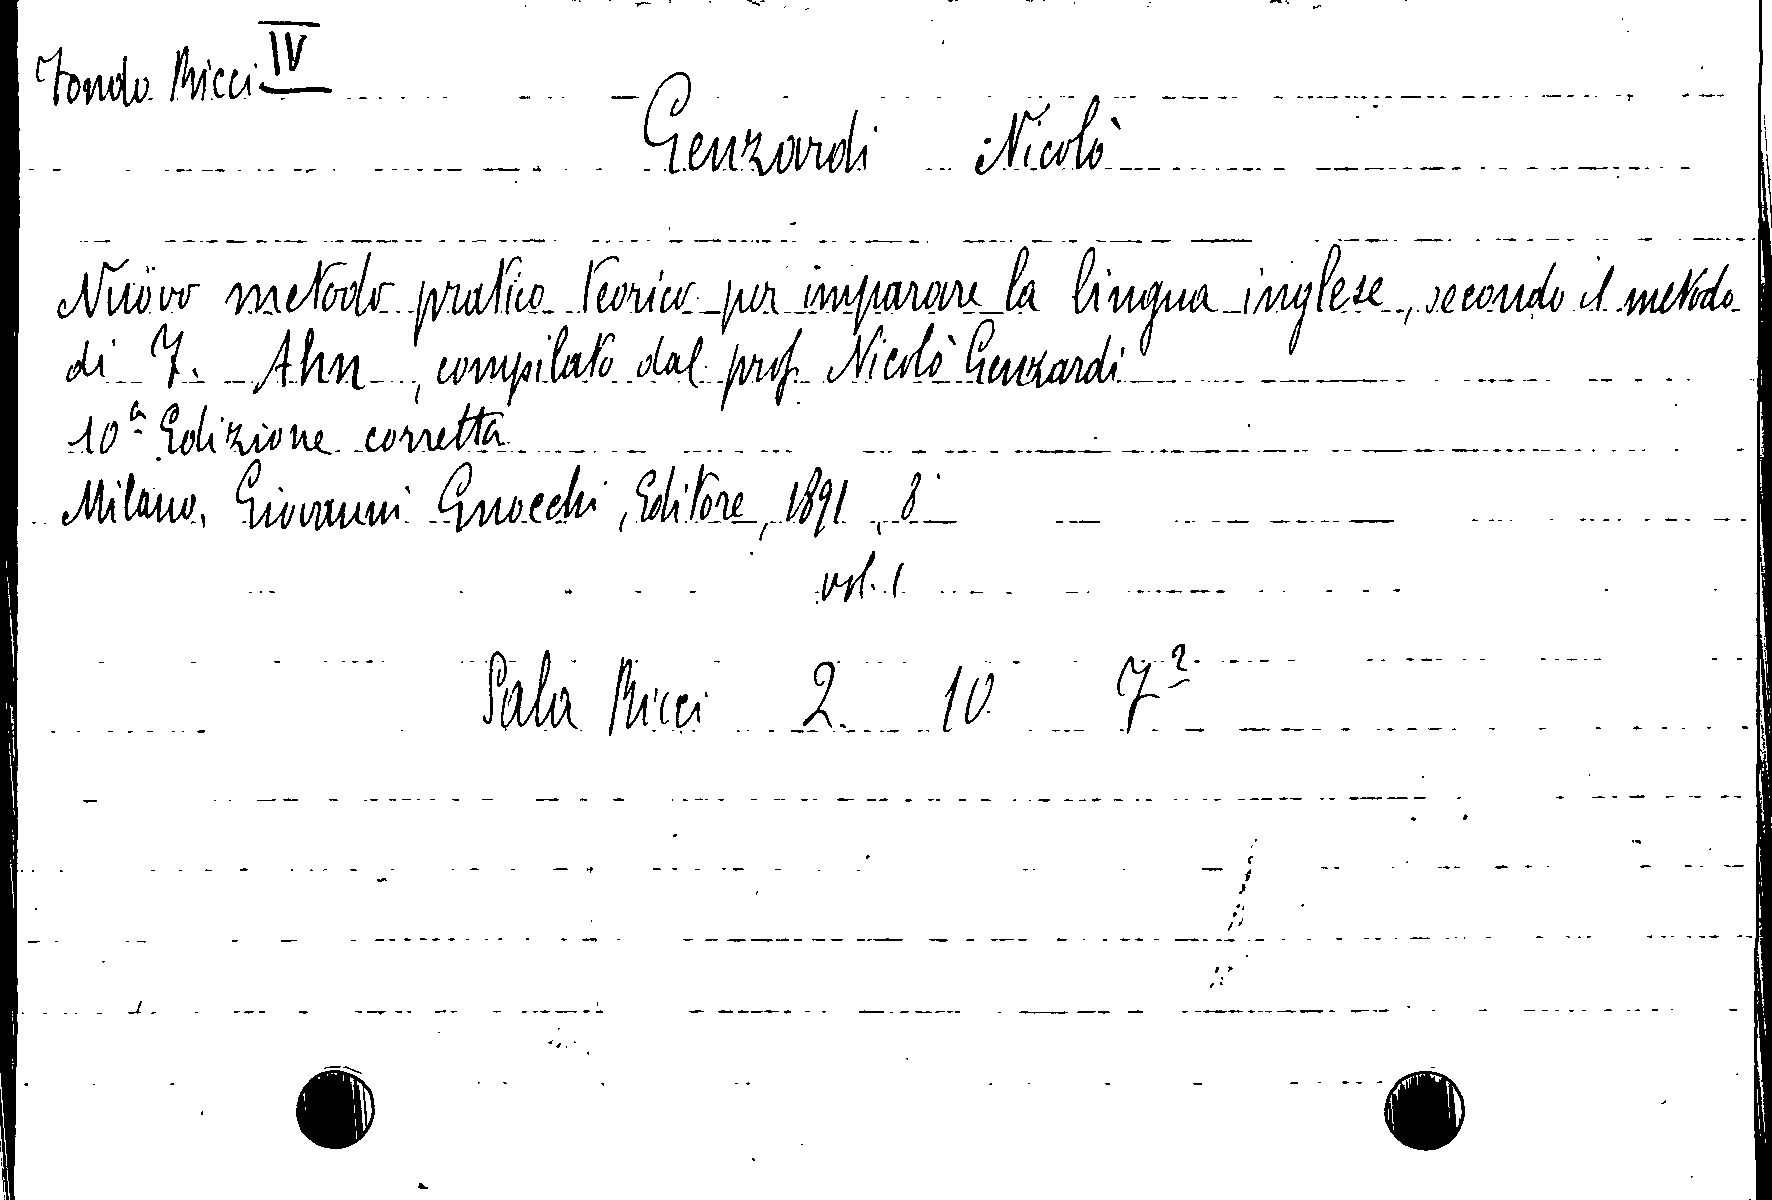 Fondo Ricci IV
Genzardi Nicolò
Nuovo metodo pratico teorico per imparare la lingua inglese, secondo il metodo
di F. Ahn, compilato dal prof. Nicolò Genzardi
10ª Edizione corretta
Milano, Giovanni Gnocchi, Editore, 1891, 8°
vol. 1
Sala Ricci 2. 10 F²